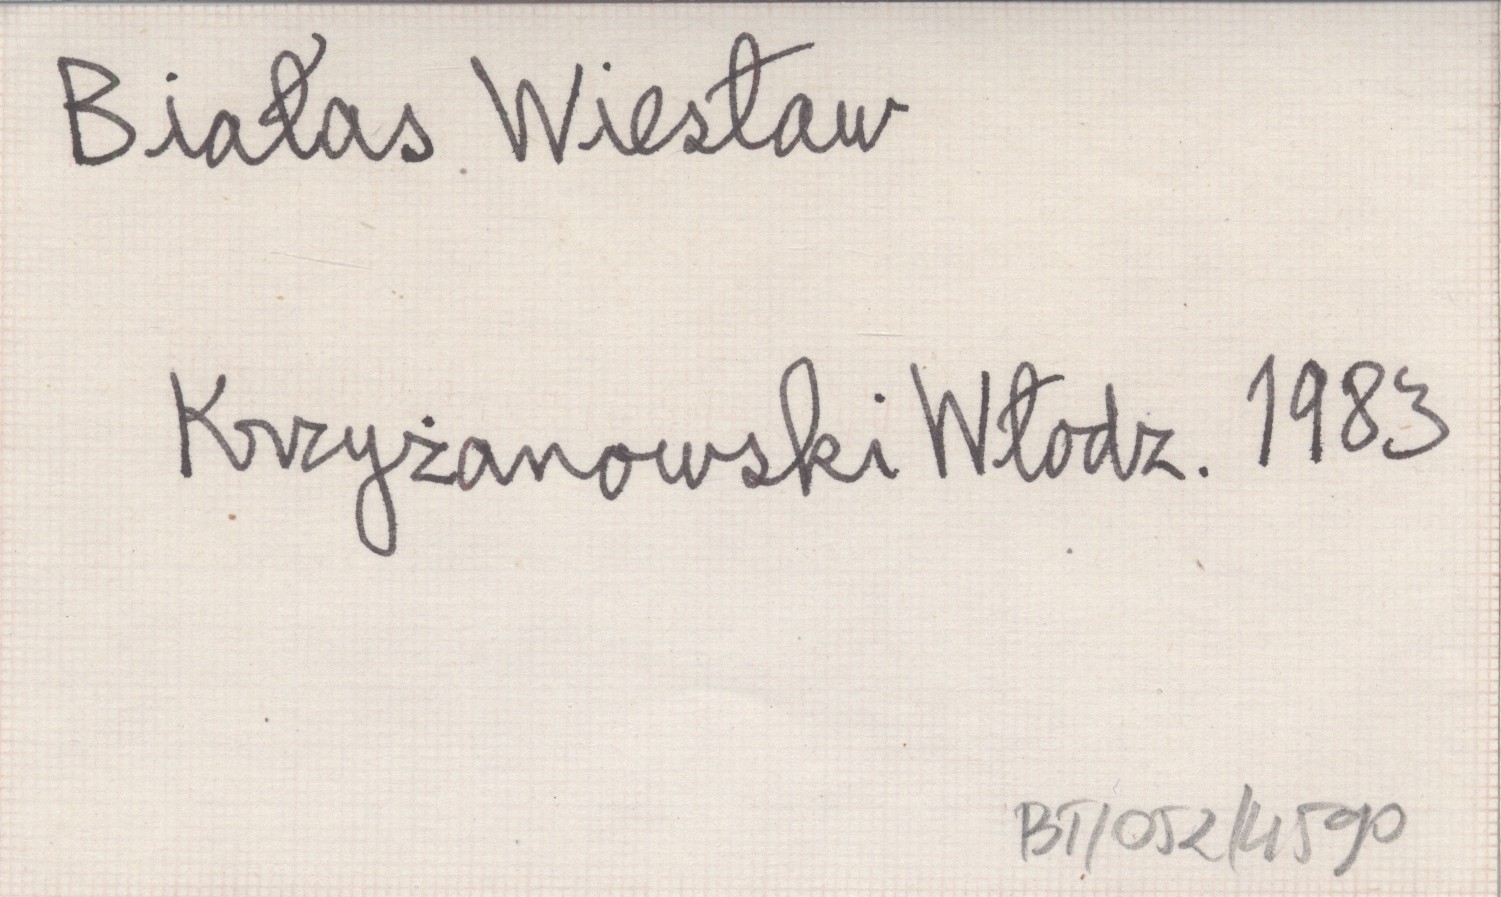 Białas Wiesław
Krzyżanowski Włodz. 1983
BT/052/4590